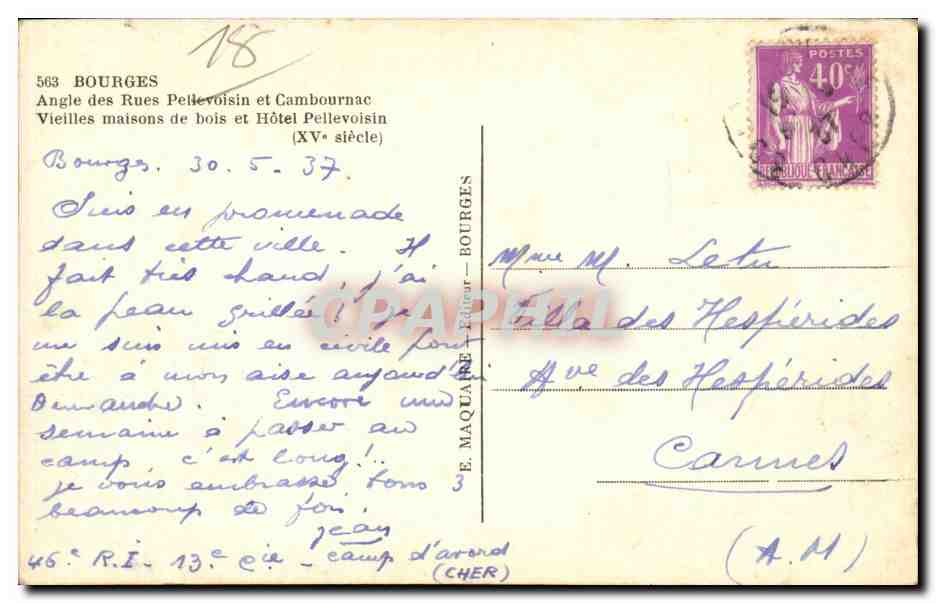 18
563 BOURGES
Angle des Rues Pellevoisin et Cambournac
Vieilles maisons de bois et Hôtel Pellevoisin
(XVe siècle)
Bourges. 30. 5. 37.
Suis en promenade
dans cette ville. Il
fait très chaud, j'ai
la peau grillée! je
me suis mis en civile pour
être à mon aise aujourd'hui
Dimanche. Encore une
semaine à passer au
camp c'est long!..
je vous embrasse tous 3
beaucoup de fois.
Jean
46e R.I. 13e Cie - camp d'avord
(CHER)
E. MAQUAIRE, Editeur — BOURGES
POSTES
40c
REPUBLIQUE FRANÇAISE
CPAPHIL
Mme M. Letu
Villa des Hespérides
Ave des Hespérides
Cannes
(A. M)